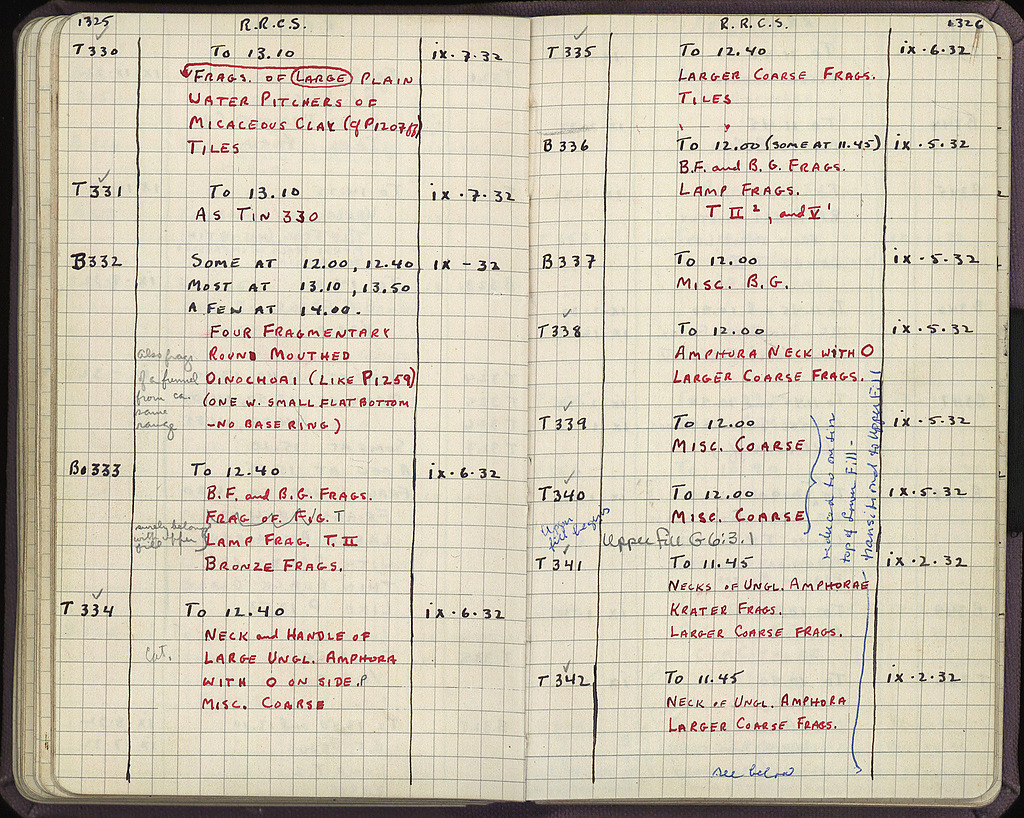 1325
R.R.C.S.
T 330 To 13.10 ix.7.32
FRAGS. OF LARGE PLAIN
WATER PITCHERS OF
MICACEOUS CLAY (cf P1207
TILES
T 331 To 13.10 ix.7.32
AS TIN 330
B332 SOME AT 12.00, 12.40 ix - 32
MOST AT 13.10, 13.50
A FEW AT 14.00.
FOUR FRAGMENTARY
ROUND MOUTHED
OINOCHOAI (LIKE P1259)
(ONE W. SMALL FLAT BOTTOM
-NO BASE RING)
Also frags
of a funnel
from ca.
same
range
Bo 333 To 12.40 ix.6.32
B.F. and B.G. FRAGS.
FRAG OF F.G. T
LAMP FRAG. T. II
BRONZE FRAGS.
surely belong
with upper
fill
T 334 To 12.40 ix.6.32
NECK and HANDLE OF
LARGE UNGL. AMPHORA
WITH O ON SIDE. P
MISC. COARSE
Cat.
R.R.C.S.
1326
T 335 To 12.40 ix.6.32
LARGER COARSE FRAGS.
TILES
B 336 To 12.00 (SOME AT 11.45) ix.5.32
B.F. and B.G. FRAGS.
LAMP FRAGS.
T II², and V¹
B337 To 12.00 ix.5.32
MISC. B.G.
T338 To 12.00 ix.5.32
AMPHORA NECK WITH O
LARGER COARSE FRAGS.
T339 To 12.00 ix.5.32
MISC. COARSE
T340 To 12.00 ix.5.32
MISC. COARSE
reduced to one tin
top of Lower Fill -
transitional to Upper Fill
Upper
fill begins
Upper Fill G6:3.1
T 341 To 11.45 ix.2.32
NECKS OF UNGL. AMPHORAE
KRATER FRAGS.
LARGER COARSE FRAGS.
T 342 To 11.45 ix.2.32
NECK OF UNGL. AMPHORA
LARGER COARSE FRAGS.
see below